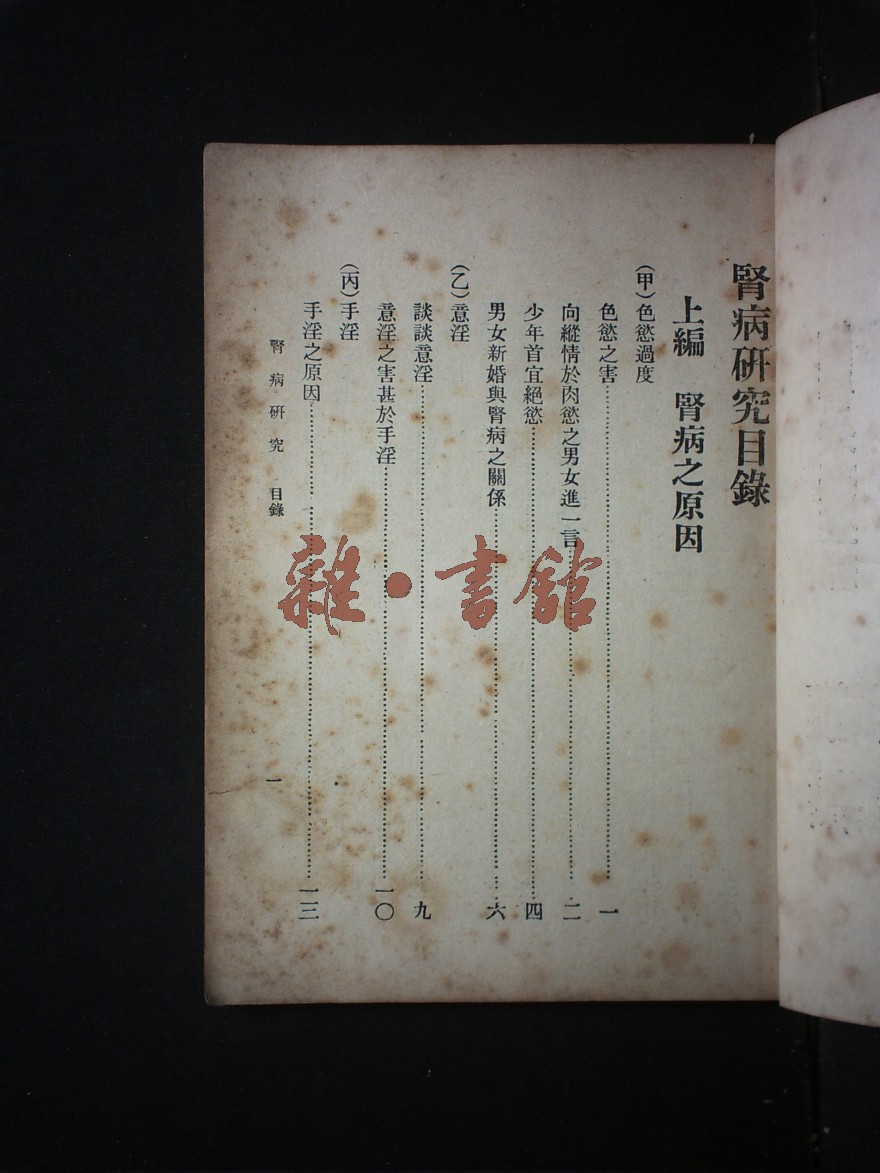 腎病硏究目錄
上編　腎病之原因
(甲)色慾過度
色慾之害……一
向縱情於肉慾之男女進一言……二
少年首宜絕慾……四
男女新婚與腎病之關係……六
(乙)意淫
談談意淫……九
意淫之害甚於手淫……一〇
(丙)手淫
手淫之原因……一三
腎病硏究　目錄
一
雜·書館